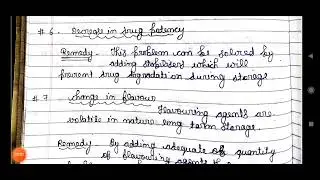 # 6. Decrease in drug potency
Remedy - This problem can be solved by
adding stabilisers which will
prevent drug degradation during storage
# 7 Change in flavour
Flavouring agents are
volatile in nature long term storage
Remedy - By adding adequate of quantity
of flavouring agents